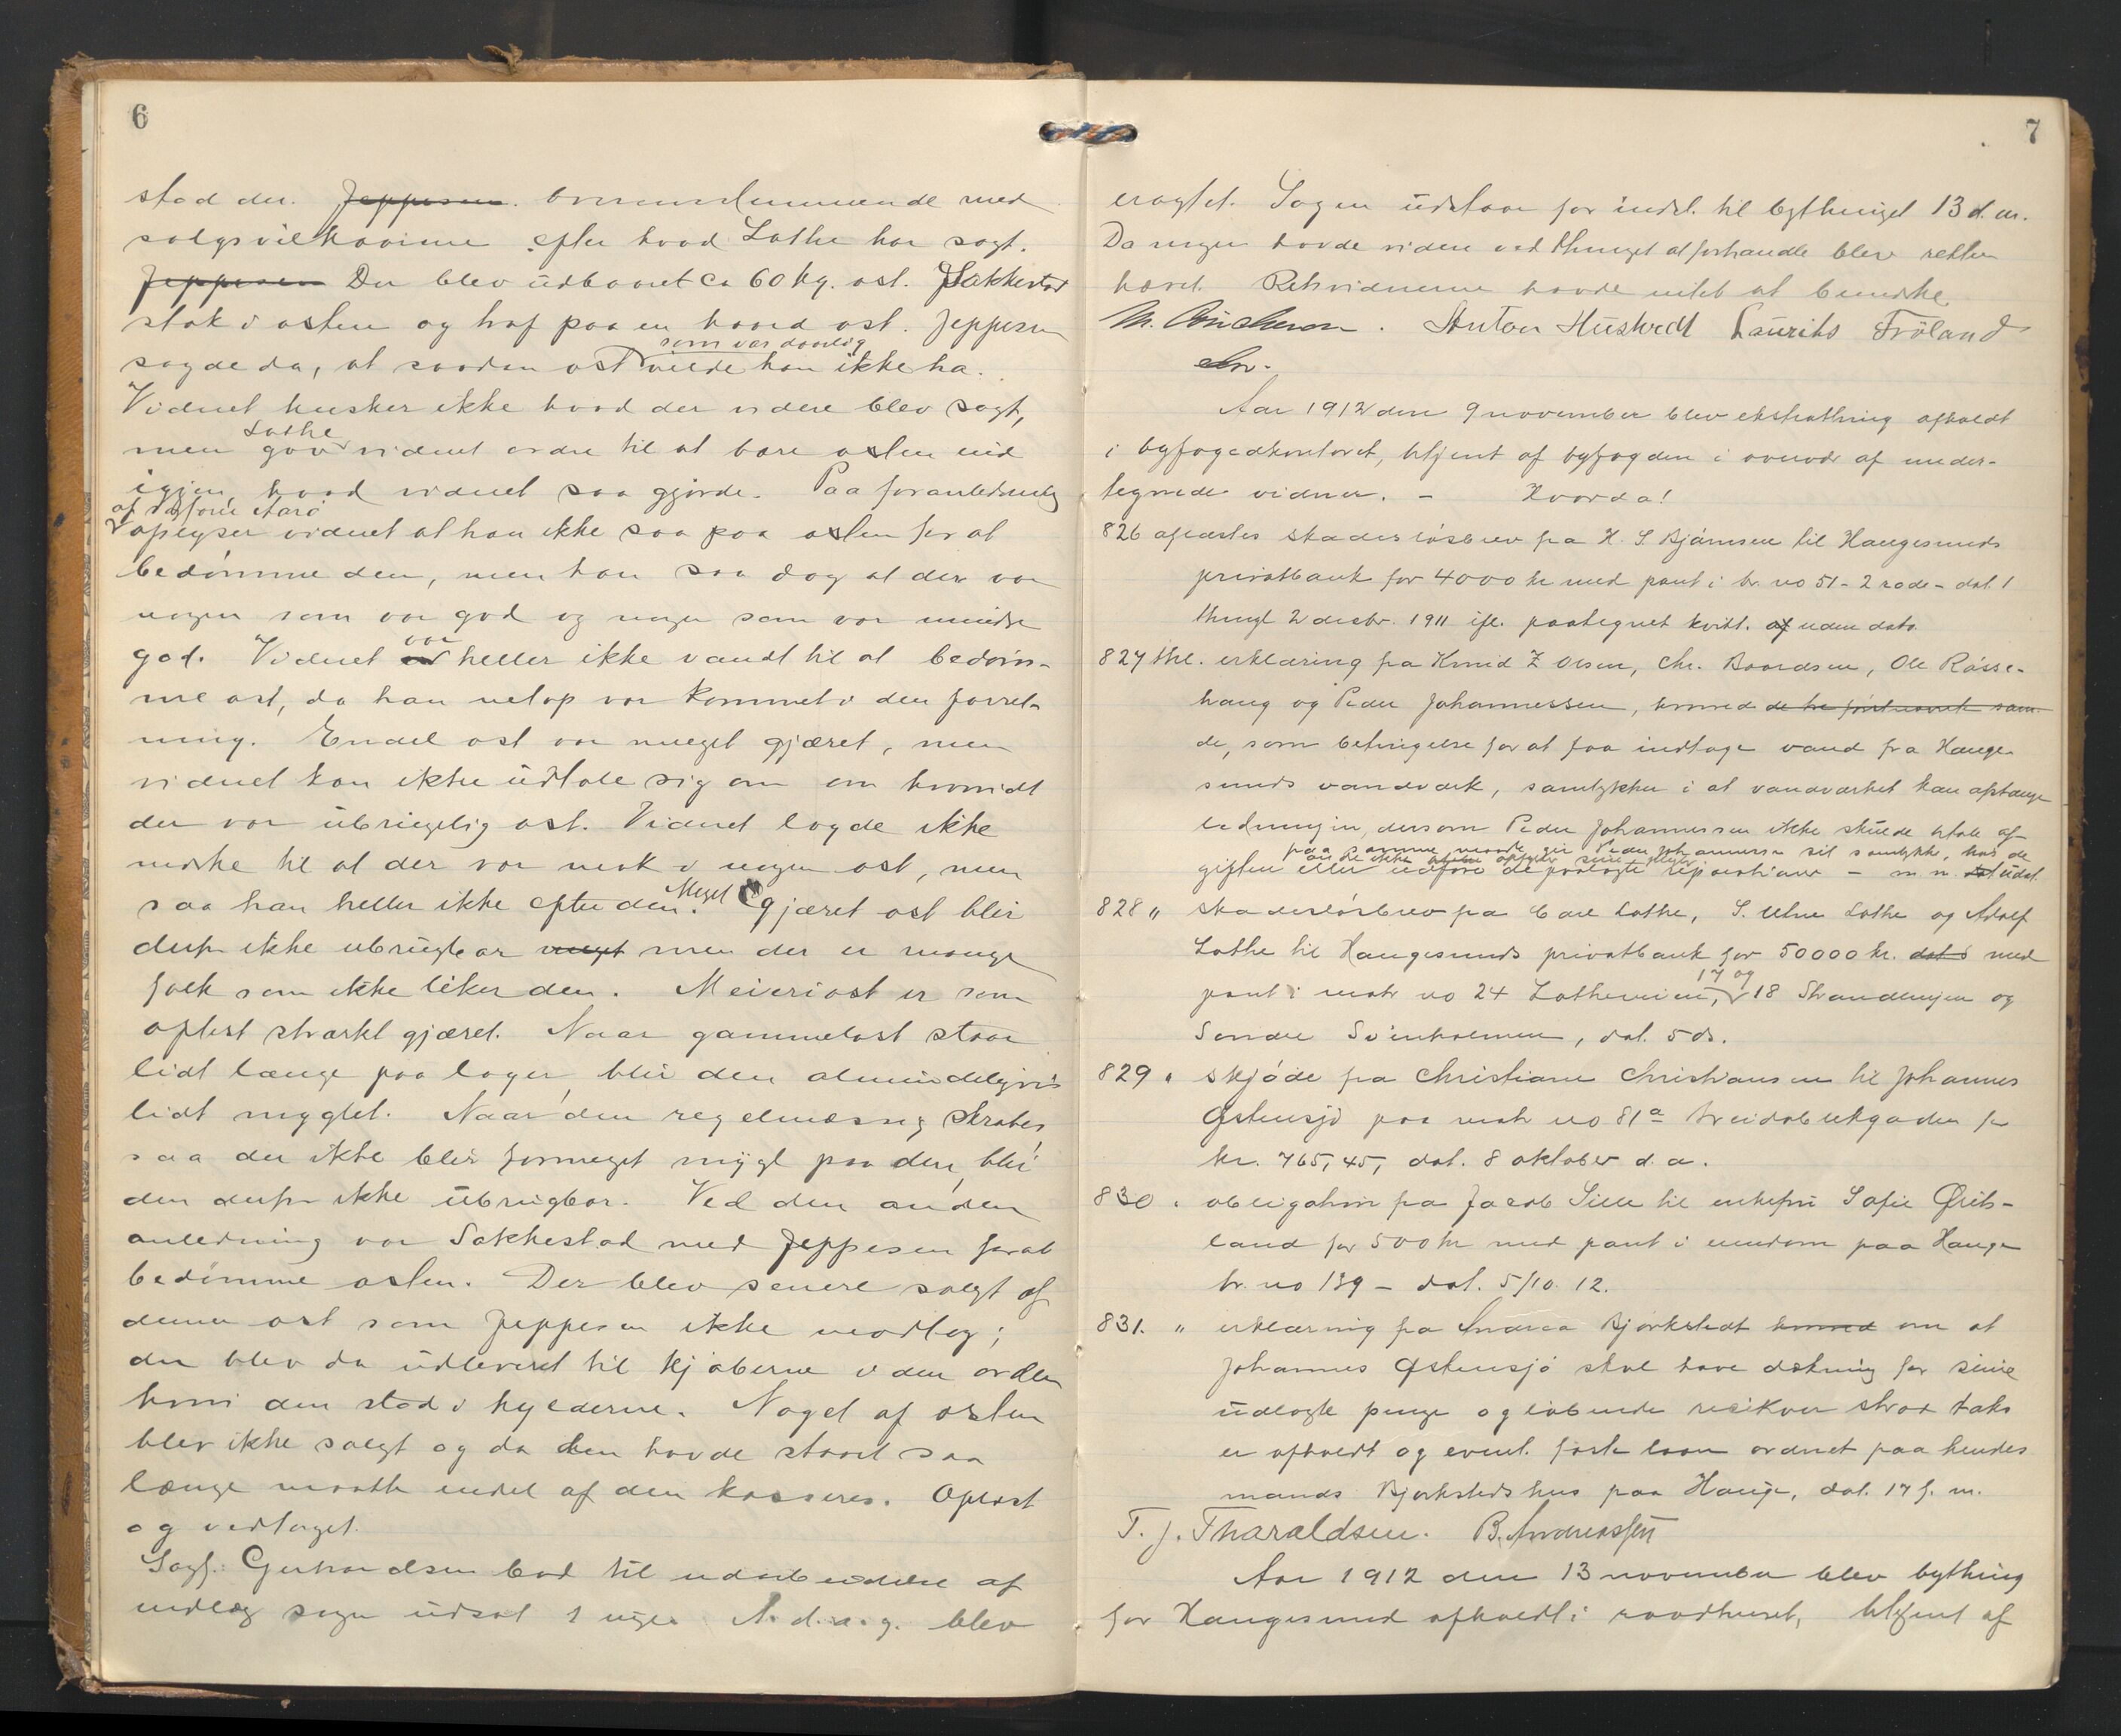 6
stod der. Jeppesen. Overensstemmende med
salgsvilkaarene efter hvad Lothe har sagt.
Jeppesen Der blev udbaaret ca 60 kg. ost. Sakkestad
stak i osten og traf paa en haard ost. Jeppesen
som var daarlig
sagde da, at saadan ost vilde han ikke ha.
Vidnet husker ikke hvad der videre blev sagt,
Lothe
men gav vidnet ordre til at bære osten ind
igjen, hvad vidnet saa gjørde. Paa foranledning
af
oplyser vidnet at han ikke saa paa osten for at
bedømme den, men han saa dog at der var
nogen som var god og nogen som var mindre
var
god. Vidnet heller ikke vandt til at bedøm-
me ost, da han netop var kommet i den forret-
ning. Endel ost var meget gjæret, men
vidnet kan ikke udtale sig om om hvorvidt
der var ubrugelig ost. Vidnet lagde ikke
merke til at der var mark i nogen ost, men
saa han heller ikke efter den. Meget gjæret ost blir
derfor ikke ubrugbar meget men der er mange
folk som ikke liker den. Meieriost er som
oftest stærkt gjæret. Naar gammelost staar
lidt længe paa lager, blir den almindeligvis
lidt mygglet. Naar den regelmæssig skrabes
saa der ikke blir formeget mygl paa den, blir
den derfor ikke ubrugbar. Ved den anden
anledning var Sakkestad med Jeppesen forat
bedømme osten. Der blev senere solgt af
denne ost som Jeppesen ikke modtog;
den blev da udleveret til kjøberne i den orden
hvori den stod i hylderne. Noget af osten
blev ikke solgt og da den havde staaet saa
længe maatte endel af den kasseres. Oplæst
og vedtaget.
Sagf. Gerhardsen bad til udarbeidelse af
indlæg sagen udsat 1 uge. A. d. a. g. blev
7
eragtet. Sagen udstaar for indst. til bythinget 13 d. m.
Da ingen havde videre ved thinget at forhandle blev retten
hævet. Retsvidnerne havde intet at bemerke.
Anton Hustvedt Laurits Fröland
Aar 1912 den 9 november blev ekstrathing afholdt
i byfogedkontoret, betjent af byfogden i overvær af under-
tegnede vidner. - Hvorda!
826 aflæstes skadesløsbrev fra H. S. Bjørnsen til Haugesunds
privatbank for 4000 kr med pant i br. no 51 - 2 rode - dat. 1
thingl 2 decbr. 1911 ifl. paategnet kvitt. af uden dato.
827 thl. erklæring fra Knud Z Olsen, Chr. Baardsen, Ole Røsse-
haug og Peder Johannessen, hvorved de tre førstnævnte sam
de, som betingelse for at faa indtage vand fra Hauge-
sunds vandverk, samtykker i at vandverket kan aftænge
ledningen, dersom Peder Johannessen ikke skulde betale af-
paa samme maade gir Peder Johannessen sit samtykke, hvis de
giften eller udføre de paalagte reparationer - m. m. udat.
828 " skadesløsbrev fra Carl Lothe, S. Utne Lothe og Adolf
Lothe til Haugesunds privatbank for 50000 kr. dat d med
17 og
pant i matr no 24 Lotheveien, 18 Strandveien og
Søndre Svinholmen, dat. 5 ds.
829 " skjøde fra Christiane Christiansen til Johannes
Østensjø paa matr no 81a Breidablikgaden for
kr. 765,45, dat. 8 oktober d. a.
830 " obligation fra Jacob Lille til enkefru Sofie Øritsland
land for 500 kr med pant i eiendom paa Hauge
br. no 139 - dat. 5/10. 12.
831. " erklæring fra Andrea Bjørkstedt hvorved om at
Johannes Østensjø skal have dækning for sine
udlagte penge og løbende resikoer strax takst
er afholdt og event. første laan ordnet paa hendes
mands Bjørksteds hus paa Hauge, dat. 17 f. m.
T. J. Tharaldsen. B. Andreassen
Aar 1912 den 13 november blev bything
for Haugesund afholdt i raadhuset, betjent af